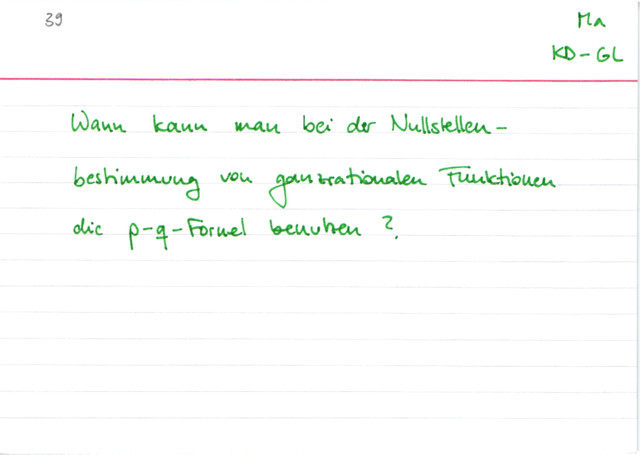 39
Ma
KD-GL
Wann kann man bei der Nullstellen-
bestimmung von ganzrationalen Funktionen
die p-q-Formel benutzen?